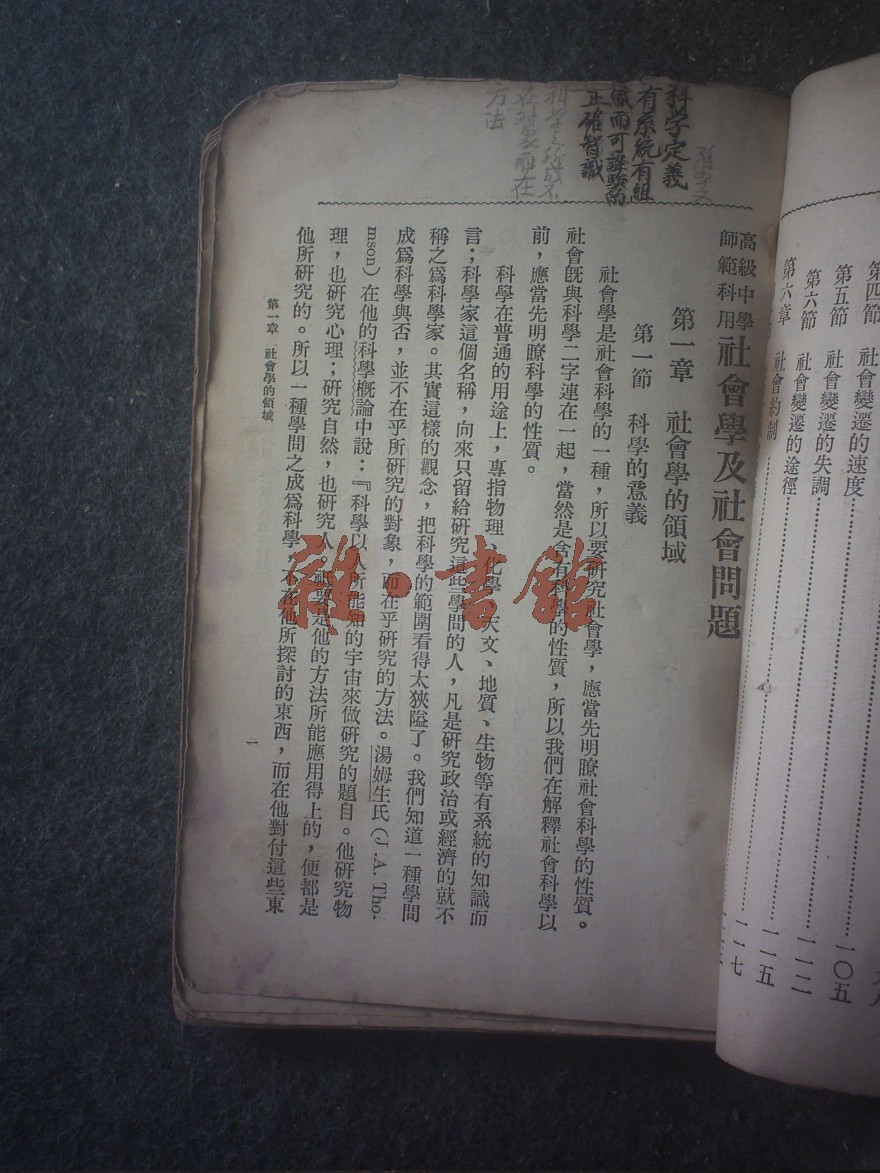 第四節 社會變遷的速度……一〇五
第五節 社會變遷的失調……一一二
第六節 社會變遷的途徑……一一五
第六章 社會約制……一一七
高級中學
師範科用
社會學及社會問題
第一章 社會學的領域
第一節 科學的意義
社會學是社會科學的一種，所以要研究社會學，應當先明瞭社會科學的性質。
社會旣與科學二字連在一起，當然是含有科學的性質，所以我們在解釋社會科學以
前，應當先明瞭科學的性質。
科學在普通的用途上，專指物理、化學、天文、地質、生物等有系統的知識而
言；科學家這個名稱，向來只留給研究這些學問的人，凡是研究政治或經濟的就不
稱之爲科學家。其實這樣的觀念，把科學的範圍看得太狹隘了。我們知道一種學問
成爲科學與否，並不在乎所研究的對象，而在乎研究的方法。湯姆生氏(J. A. Tho-
mson) 在他的科學概論中說：『科學以人所能知的宇宙來做研究的題目。他研究物
理，也研究心理；研究自然，也研究人。凡是他的方法所能應用得上的，便都是
他所研究的。所以一種學問之成爲科學，不在他所探討的東西，而在他對付這些東
第一章 社會學的領域
一
科学定義
有系統有組
織而可證驗的
正確智識
科学之所以不
在对象而在
方法
雜·書館